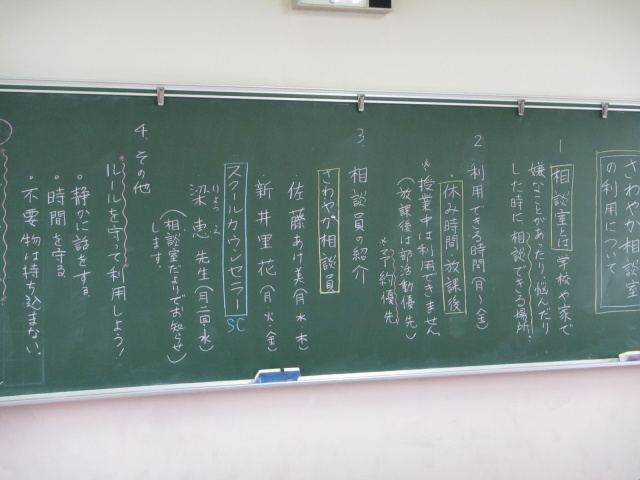 さわやか相談室
の利用について
1 相談室とは 学校や家で
嫌なことがあったり悩んだり
した時に相談できる場所。
2 利用できる時間(月〜金)
・休み時間・放課後
※授業中は利用できません
(放課後は部活動優先)
※予約優先
3 相談員の紹介
さわやか相談員
佐藤あけ美(月・水・木)
新井里花(月・火・金)
スクールカウンセラー SC
梁 恵 先生(月一回・水)
(相談室だよりでお知らせ
します。)
4 その他
ルールを守って利用しよう!
・静かに話をする
・時間を守る
・不要物は持ち込まない。